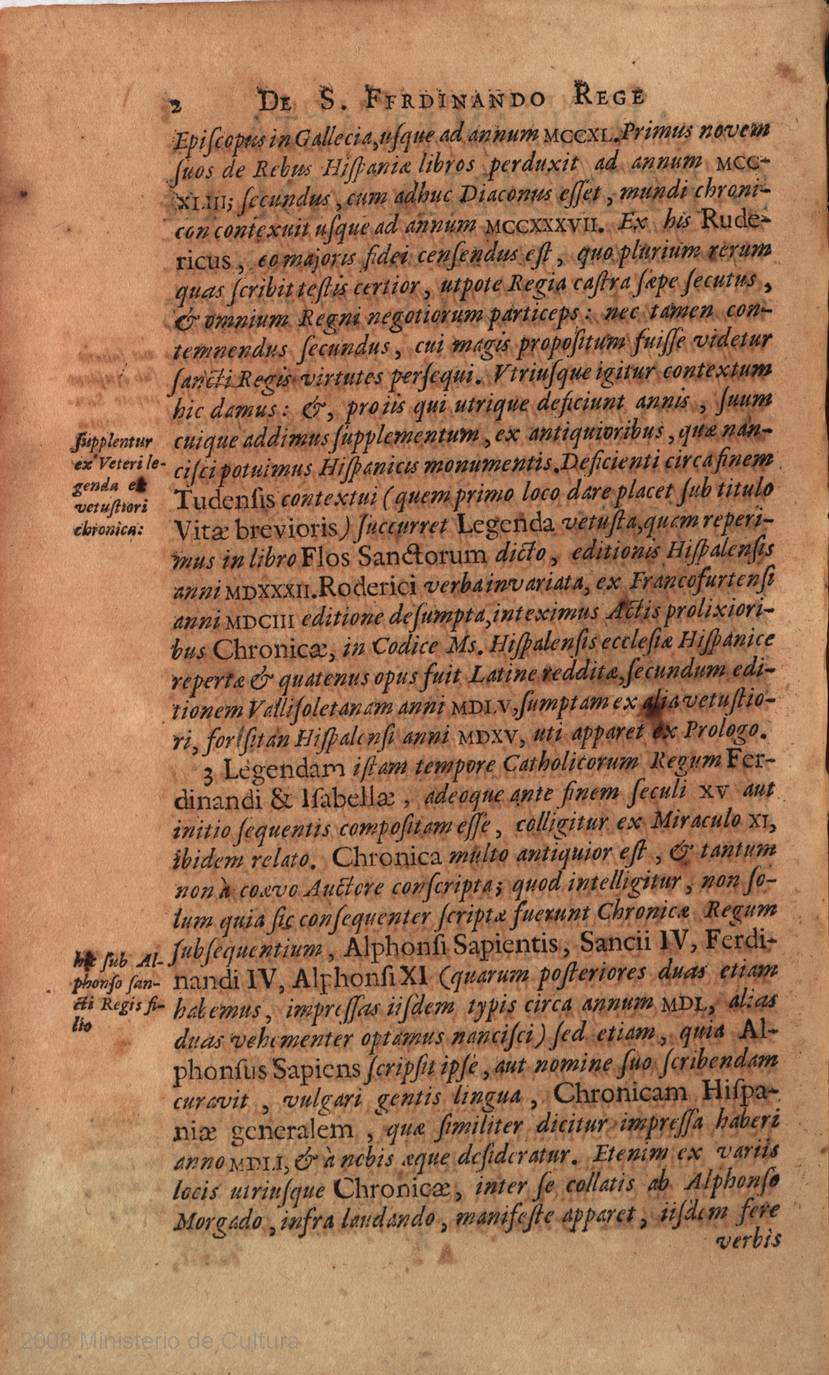 2 DE S. FERDINANDO REGE
Epiſcopus in Gallecia, uſque ad annum MCCXL. Primus novem
ſuos de Rebus Hiſpaniæ libros perduxit ad annum MCC-
XLIII; ſecundus, cum adhuc Diaconus eſſet, mundi chroni-
con contexuit uſque ad annum MCCXXXVII. Ex his Rude-
ricus, eo majoris fidei cenſendus eſt, quo plurium rerum
quas ſcribit teſtis certior, utpote Regia caſtra ſæpe ſecutus,
& omnium Regni negotiorum particeps: nec tamen con-
temnendus ſecundus, cui magis propoſitum fuiſſe videtur
ſancti Regis virtutes perſequi. Vtriuſque igitur contextum
hic damus: &, pro iis qui utrique deficiunt annis, ſuum
cuique addimus ſupplementum, ex antiquioribus, quæ nan-
ciſci potuimus Hiſpanicis monumentis. Deficienti circa finem
Tudenſis contextui (quem primo loco dare placet ſub titulo
Vitæ brevioris) ſuccurret Legenda vetuſta, quam reperi-
mus in libro Flos Sanctorum dicto, editionis Hiſpalenſis
anni MDXXXII. Roderici verba invariata, ex Francofurtenſi
anni MDCIII editione deſumpta, inteximus Actis prolixiori-
bus Chronicæ, in Codice Ms. Hiſpalenſis eccleſiæ Hiſpanice
repertæ & quatenus opus fuit Latine redditæ, ſecundum edi-
tionem Valliſoletanam anni MDLV, ſumptam ex alia vetuſtio-
ri, forſitan Hiſpalenſi anni MDXV, uti apparet ex Prologo.
3 Legendam iſtam tempore Catholicorum Regum Fer-
dinandi & Iſabellæ, adeoque ante finem ſeculi XV aut
initio ſequentis compoſitam eſſe, colligitur ex Miraculo XI,
ibidem relato. Chronica multo antiquior eſt, & tantum
non à coævo Auctore conſcripta; quod intelligitur, non ſo-
lum quia ſic conſequenter ſcriptæ fuerunt Chronicæ Regum
ſubſequentium, Alphonſi Sapientis, Sancii IV, Ferdi-
nandi IV, Alphonſi XI (quarum poſteriores duas etiam
habemus, impreſſas iiſdem typis circa annum MDL, alias
duas vehementer optamus nanciſci) ſed etiam, quia Al-
phonſus Sapiens ſcripſit ipſe, aut nomine ſuo ſcribendam
curavit, vulgari gentis lingua, Chronicam Hiſpa-
niæ generalem, quæ ſimiliter dicitur impreſſa haberi
anno MDLI, & à nobis æque deſideratur. Etenim ex variis
locis utriuſque Chronicæ, inter ſe collatis ab Alphonſo
Morgado, infra laudando, manifeſte apparet, iiſdem fere
verbis
ſupplentur
ex Veteri le-
genda et
vetuſtiori
chronica:
hæc ſub Al-
phonſo ſan-
cti Regis fi-
lio
2008 Ministerio de Cultura